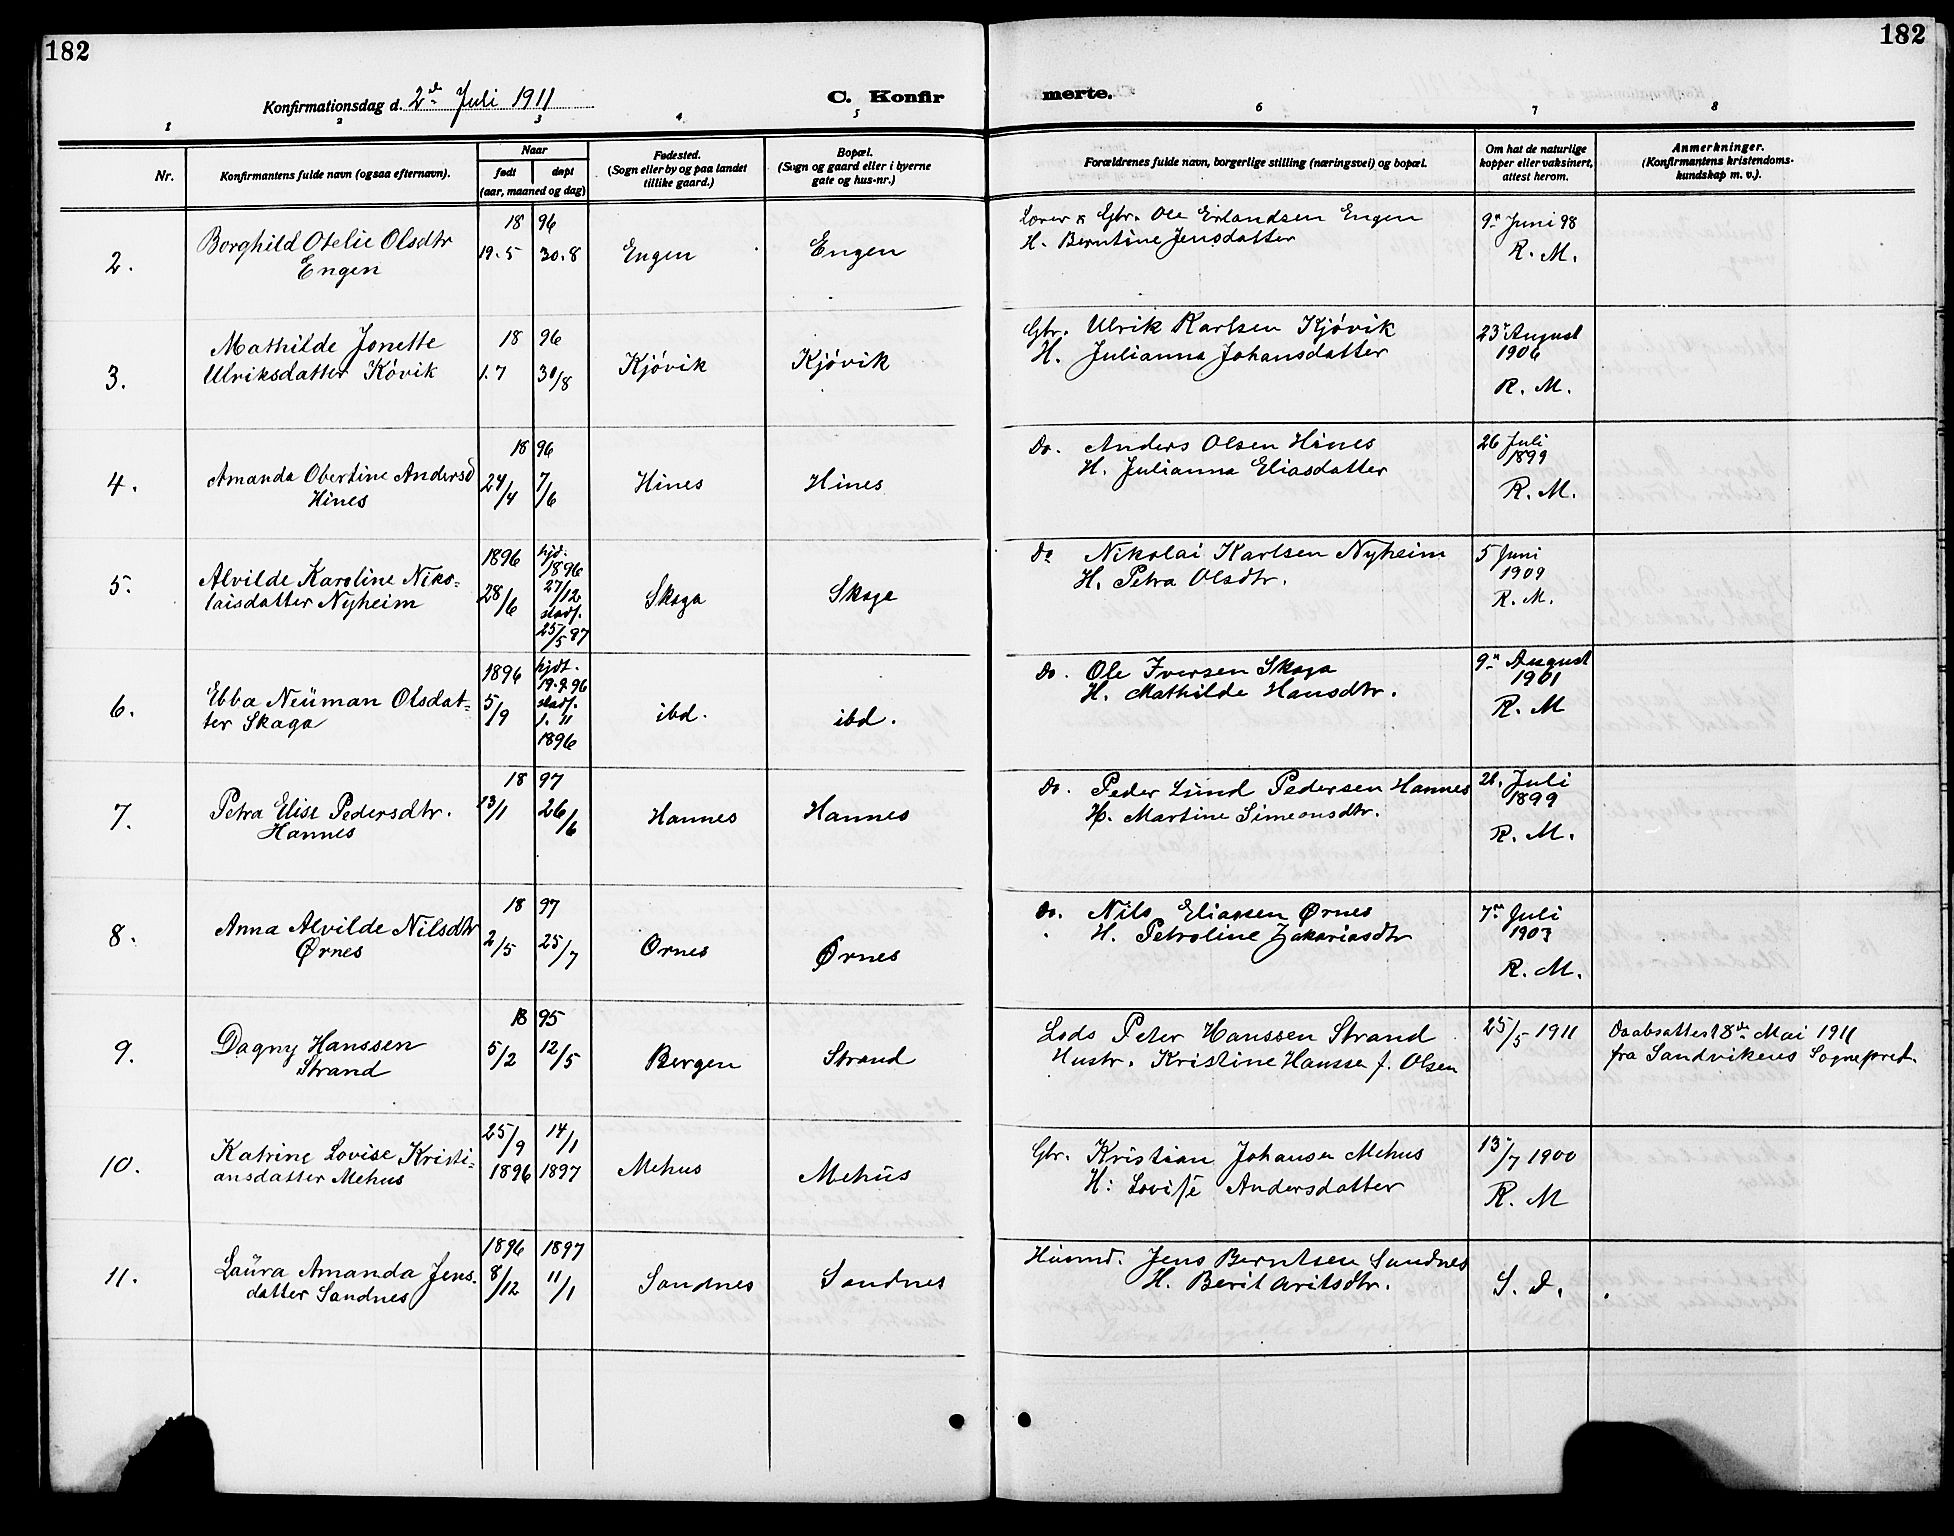 182
182
Konfirmationsdag d. 2de Juli 1911
C. Konfir
merte.
1 2 3 4 5 6 7 8
Nr.
Konfirmantens fulde navn (ogsaa efternavn).
Naar
født
døpt
(aar, maaned og dag)
Fødested.
(Sogn eller by og paa landet
tillike gaard.)
Bopæl.
(Sogn og gaard eller i byerne
gate og hus-nr.)
Forældrenes fulde navn, borgerlige stilling (næringsvei) og bopæl.
Om hat de naturlige
kopper eller vaksinert,
attest herom.
Anmerkninger.
(Konfirmantens kristendoms-
kundskap m. v.).
2.
Borghild Otelie Olsdtr
Engen
18 96
19.5 30.8
Engen
Engen
Gbr. Ole Erlandsen Engen
H. Berntine Jensdatter
9n Juni 98
R. M.
3.
Mathilde Jonette
Ulriksdatter Kövik
18 96
1.7 30/8
Kjövik
Kjövik
Gbr. Ulrik Karlsen Kjövik
H. Julianna Johansdatter
23r August
1906
R. M.
4.
Amanda Obertine Andersd
Hines
18 96
24/4 7/6
Hines
Hines
Do. Anders Olsen Hines
H. Julianna Eliasdatter
26 Juli
1899
R. M.
5.
Alvilde Karoline Niko-
laisdatter Nyheim
1896
28/6
hjd.
1896
27/12
stadf.
25/5 97
Skaga
Skaga
Do Nikolai Karlsen Nyheim
H. Petra Olsdtr.
5 Juni
1909
R. M.
6.
Ebba Neüman Olsdat-
ter Skaga
1896
5/9
hjdt.
19.9.96
stadf.
1. 11
1896
ibd.
ibd.
Do. Ole Iversen Skaga
H. Mathilde Hansdtr.
9n August
1901
R. M
7.
Petra Elise Pedersdtr.
Hannes
18 97
13/1 26/6
Hannes
Hannes
Do. Peder Lund Pedersen Hannes
H. Martine Simeonsdtr.
26. Juli
1899
R. M.
8.
Anna Alvilde Nilsdtr
Ørnes
18 97
2/5 25/7
Ornes
Ørnes
Do. Nils Eliassen Ørnes
H. Petroline Zakariasdtr
7n Juli
1903
R. M.
9.
Dagny Hanssen
Strand
18 95
5/2 12/5
Bergen
Strand
Lods Peter Hanssen Strand
Hustr. Kristine Hansse f. Olsen
25/5 1911
Daabsattest 8de Mai 1911
fra Sandvikens Sognepret.
10.
Katrine Lovise Kristi-
ansdatter Mehus
25/9 14/1
1896 1897
Mehus
Mehüs
Gbr. Kristian Johansen Mehus
H: Lovise Andersdatter
13/7 1900
R. M
11.
Laüra Amanda Jens.
datter Sandnes
1896 1897
8/12 11/1
Sandnes
Sandnes
Husmd. Jens Berntsen Sandnes
H. Berit Aritsdtr.
S. D.